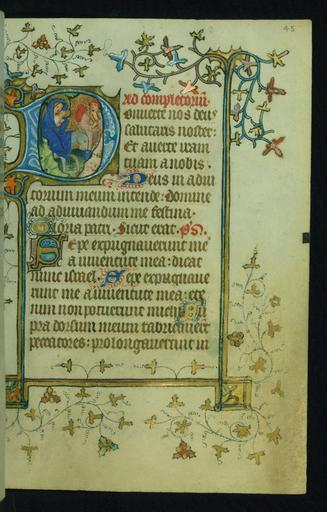 45
Ad completorium
Onuerte nos deus
salutaris noster:
Et auerte iram
tuam a nobis.
Deus in adiu
torium meum intende: domine
ad adiuuandum me festina.
Gloria patri. Sicut erat. ps.
Sepe expugnauerunt me
a iuuentute mea: dicat
nunc israel. Sepe expugnaue
runt me a iuuentute mea: ete
nim non potuerunt michi. Su
pra dorsum meum fabricauerunt
peccatores: prolongauerunt in